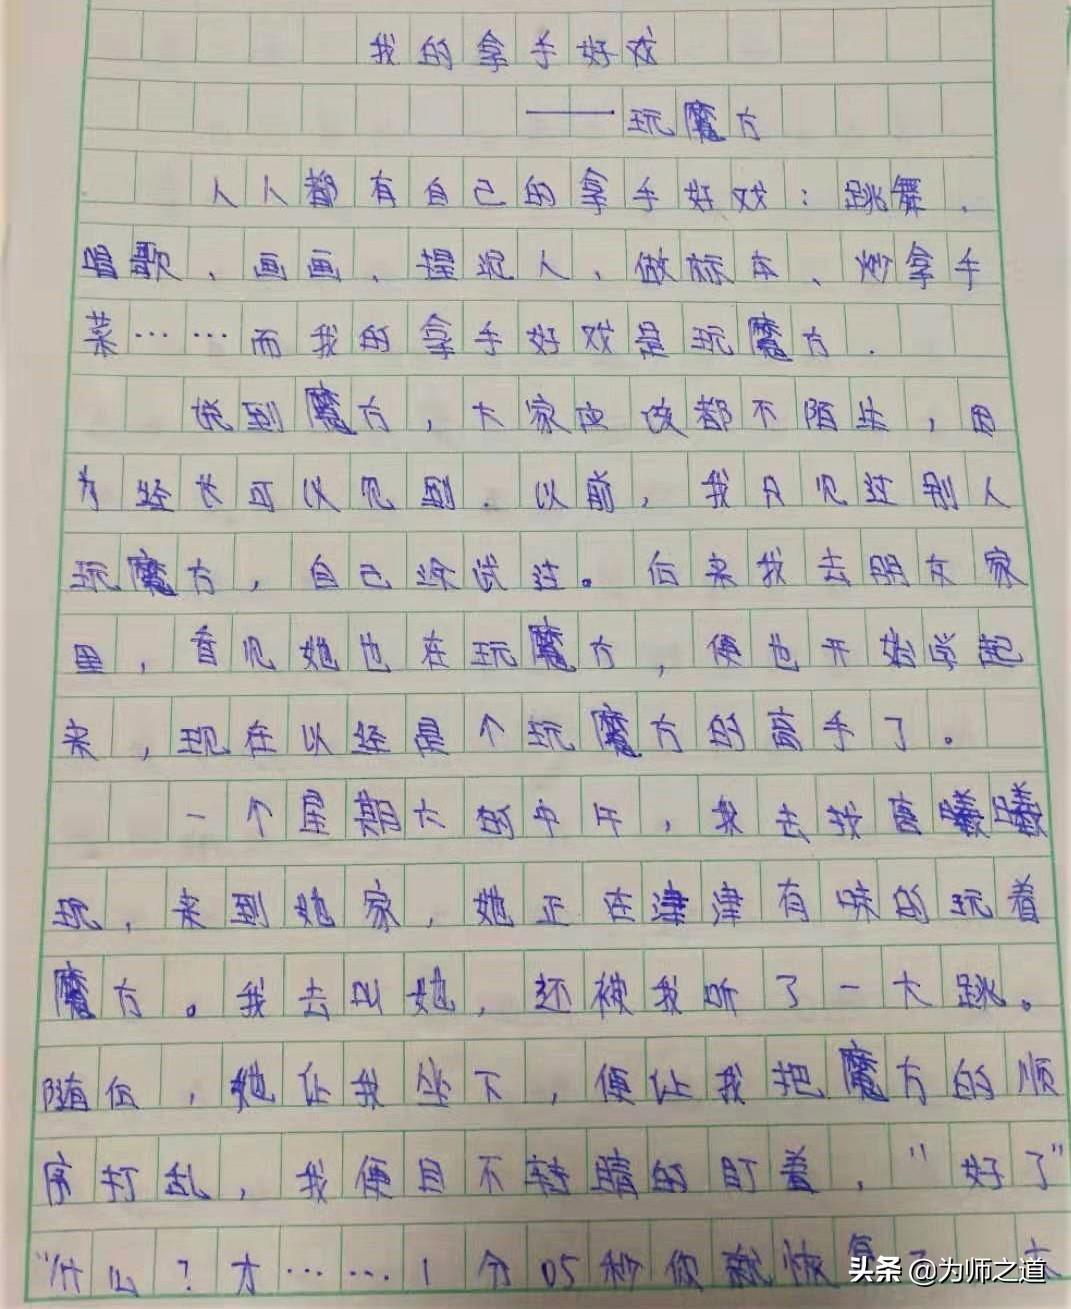 我的拿手好戏
——玩魔方
人人都有自己的拿手好戏：跳舞、
唱歌、画画、捏泥人、做标本、炒拿手
菜……而我的拿手好戏是玩魔方.
说到魔方，大家应该都不陌生，因
为经长可以见到.以前，我只见过别人
玩魔方，自己没试过。后来我去朋友家
里，看见她也在玩魔方，便也开始学起
来，现在以经是个玩魔方的高手了。
一个星期六的中午，我去找高曦曦
玩，来到她家，她正在津津有味的玩着
魔方。我去叫她，还被我吓了一大跳。
随后，她让我坐下，便让我把魔方的顺
序打乱，我便目不转睛的盯着，“好了”
“什么？才……1分05秒你就恢复了
头条 @为师之道